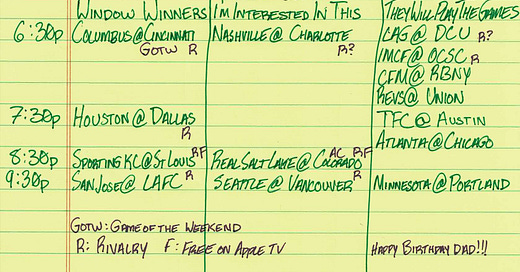 WINDOW WINNERS I'M INTERESTED IN THIS THEY WILL PLAY THE GAMES
6:30p COLUMBUS@CINCINNATI NASHVILLE @ CHARLOTTE LAG @ DCU R?
GOTW R R? IMCF@OCSC R
CFM@RBNY
REVS@UNION
7:30p HOUSTON@DALLAS TFC@AUSTIN
R ATLANTA@CHICAGO
8:30p SPORTING KC@ST LOUIS RF REAL SALT LAKE @ COLORADO AC RF
9:30p SAN JOSE@LAFC R SEATTLE @ VANCOUVER R MINNESOTA@PORTLAND
GOTW: GAME OF THE WEEKEND
R: RIVALRY F: FREE ON APPLE TV HAPPY BIRTHDAY DAD!!!